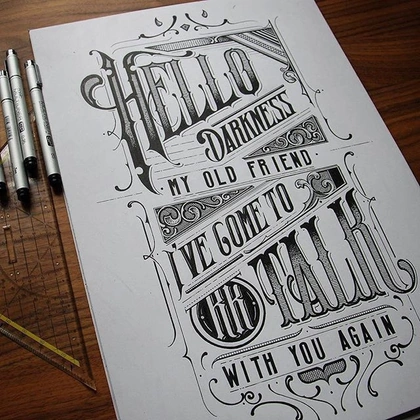 HELLO
DARKNESS
MY OLD FRIEND
I'VE COME TO
TALK
WITH YOU AGAIN